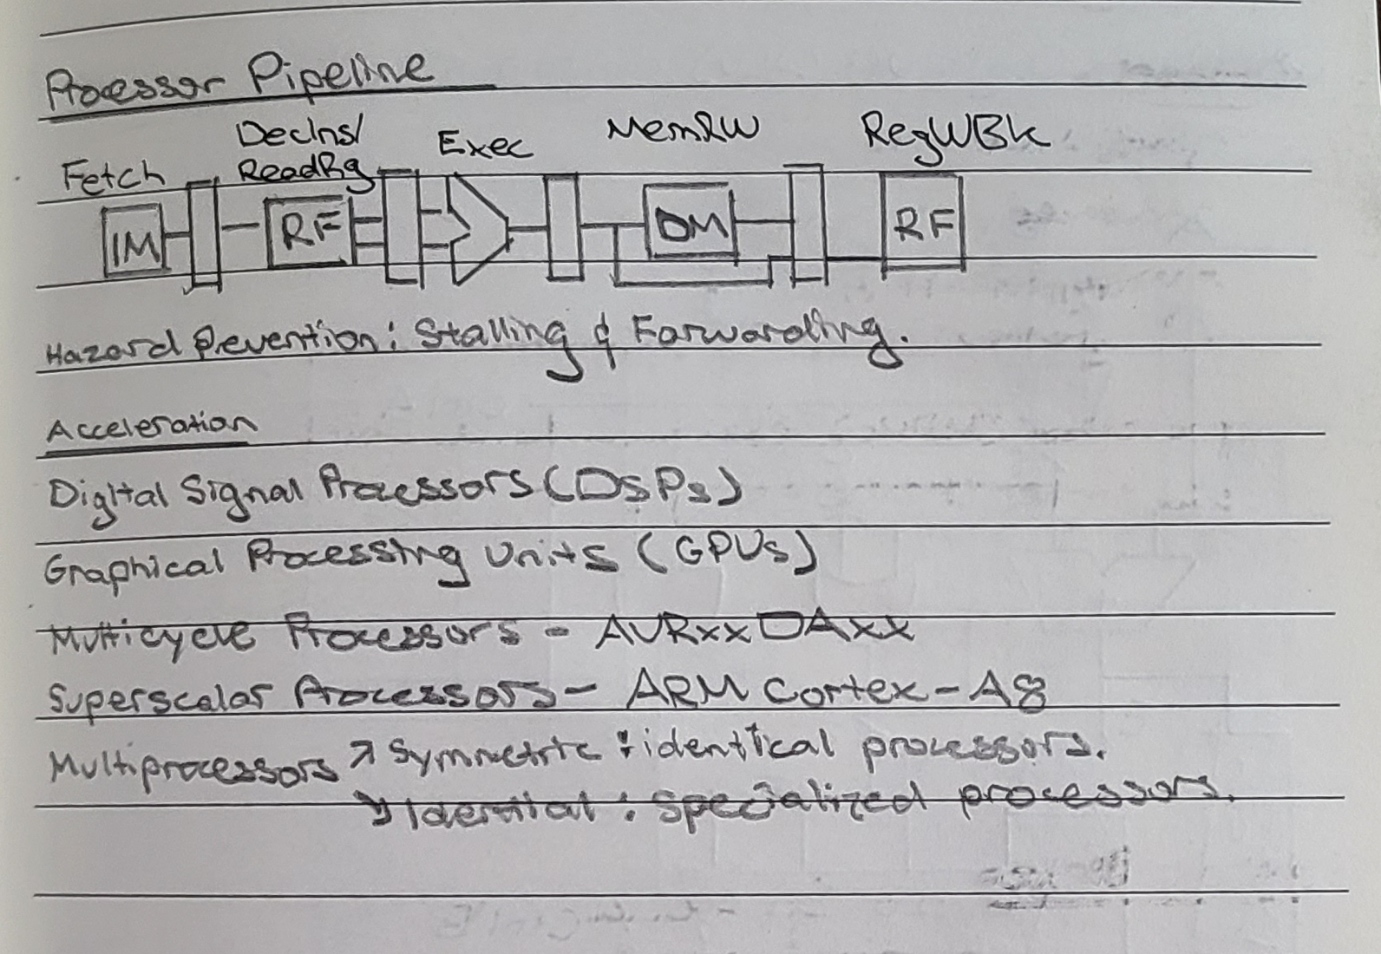 Processor Pipeline
Fetch DecIns/ReadRg Exec MemRW RegWBk
IM RF DM RF
Hazard Prevention: Stalling & Forwarding.
Acceleration
Digital Signal Processors (DSPs)
Graphical Processing Units (GPUs)
Multicycle Processors - AVRxxDAxx
Superscalar Processors - ARM Cortex-A8
Multiprocessors ↗ Symmetric : identical processors.
↘ Idential : Specialized processors.